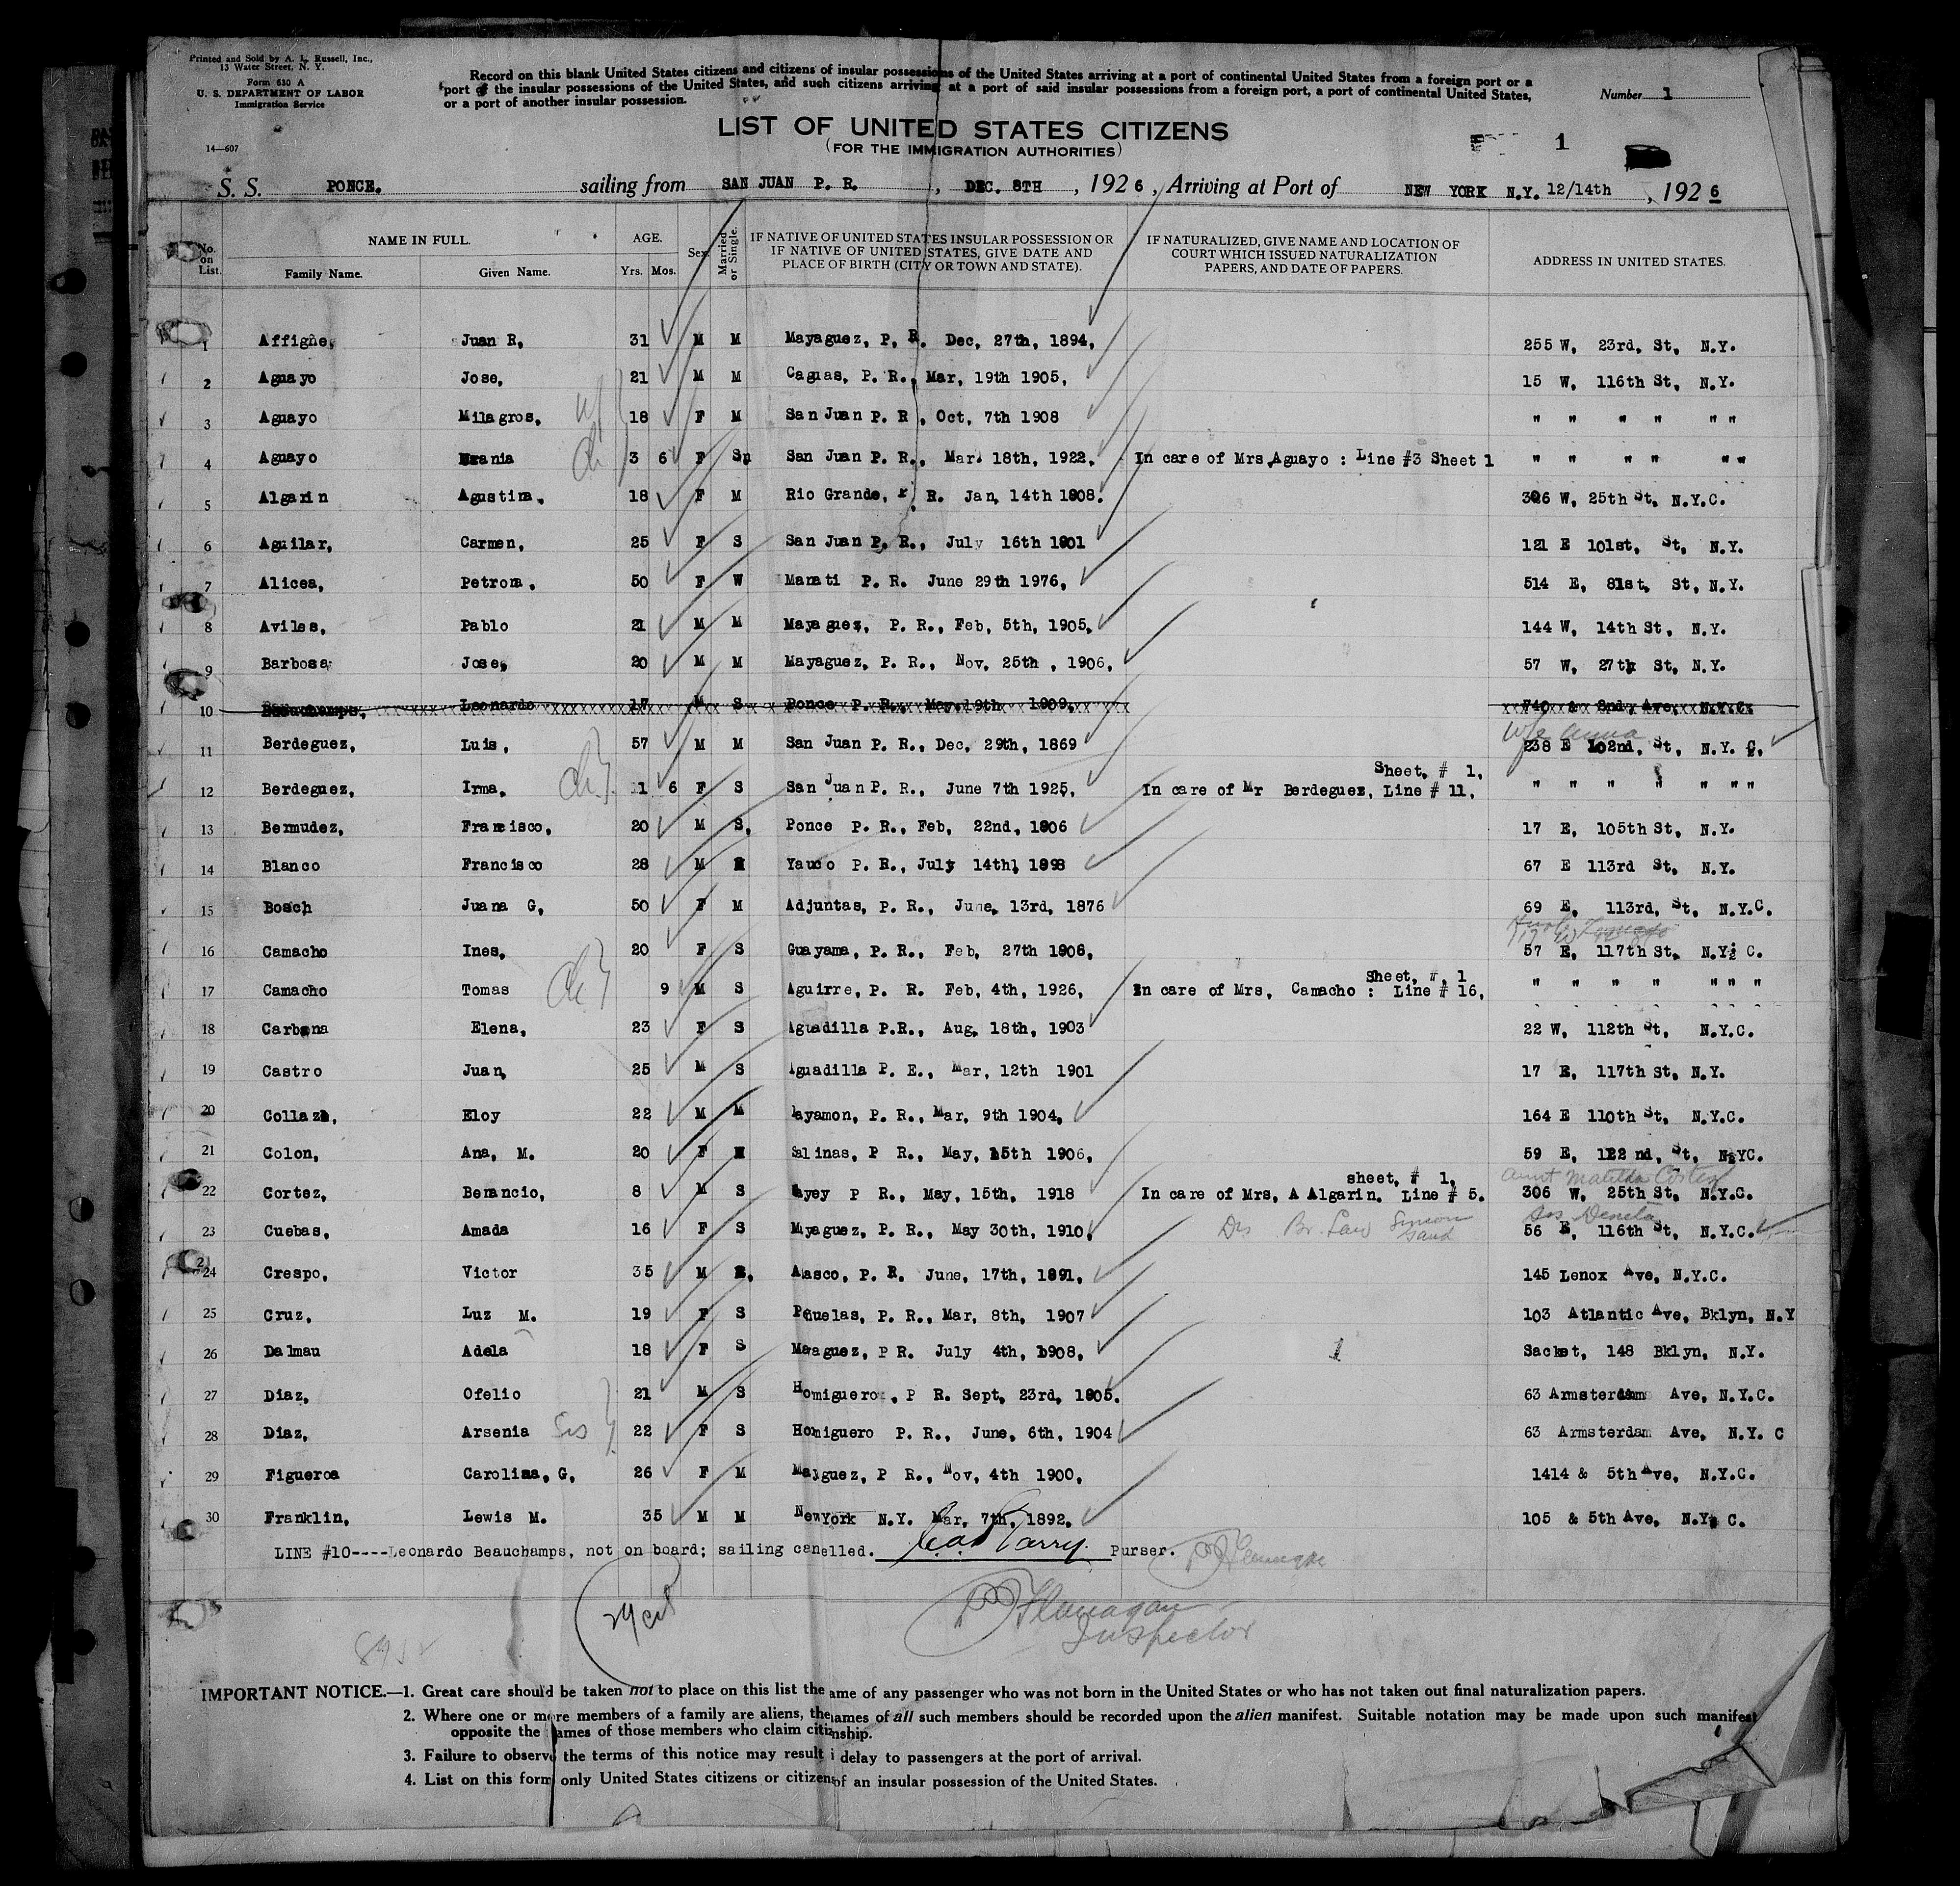 Printed and Sold by A. L. Russell, Inc.,
13 Water Street, N. Y.
Form 630 A
U. S. DEPARTMENT OF LABOR
Immigration Service
14—607
Record on this blank United States citizens and citizens of insular possessions of the United States arriving at a port of continental United States from a foreign port or a
port of the insular possessions of the United States, and such citizens arriving at a port of said insular possessions from a foreign port, a port of continental United States,
or a port of another insular possession.
Number 1
LIST OF UNITED STATES CITIZENS
(FOR THE IMMIGRATION AUTHORITIES)
1
S. S. PONCE. sailing from SAN JUAN P. R. , DEC. 8TH , 192 6 , Arriving at Port of NEW YORK N.Y. 12/14th , 192 6
No. on List. NAME IN FULL. Family Name. Given Name. AGE. Yrs. Mos. Sex. Married or Single. IF NATIVE OF UNITED STATES INSULAR POSSESSION OR IF NATIVE OF UNITED STATES, GIVE DATE AND PLACE OF BIRTH (CITY OR TOWN AND STATE). IF NATURALIZED, GIVE NAME AND LOCATION OF COURT WHICH ISSUED NATURALIZATION PAPERS, AND DATE OF PAPERS. ADDRESS IN UNITED STATES.
1 Affigne, Juan R, 31 M M Mayaguez, P, R. Dec, 27th, 1894, 255 W, 23rd, St, N.Y.
2 Aguayo Jose, 21 M M Caguas, P. R., Mar, 19th 1905, 15 W, 116th St, N.Y.
3 Aguayo Milagros, 18 F M San Juan P. R , Oct, 7th 1908 " " " " " "
4 Aguayo 3 6 F Sn San Juan P. R., Mar. 18th, 1922, In care of Mrs,Aguayo : Line #3 Sheet 1 " " " " " "
5 Algarin Agustina, 18 F M Rio Grande, P. R. Jan, 14th 1908. 306 W, 25th St, N.Y.C.
6 Aguilar, Carmen, 25 F S San Juan P. R., July 16th 1901 121 E 101st, St, N.Y.
7 Alicea, Petrona, 50 F W Manati P. R. June 29th 1976, 514 E, 81st, St, N.Y.
8 Aviles, Pablo 21 M M Mayaguez, P. R., Feb, 5th, 1905, 144 W, 14th St, N.Y.
9 Barbosa, Jose, 20 M M Mayaguez, P. R., Nov, 25th , 1906, 57 W, 27th St, N.Y.
10 Beauchamps, Leonardo 17 M S Ponce P. R., May.19th 1909, 740 & 2nd, Ave, N.Y.C.
wife Anna
11 Berdeguez, Luis, 57 M M San Juan P. R., Dec, 29th, 1869 238 E 102nd, St, N.Y. C,
Sheet, # 1,
12 Berdeguez, Irma, 1 6 F S San Juan P. R., June 7th 1925, In care of Mr Berdeguez, Line # 11, " " " " " " "
13 Bermudez, Francisco, 20 M S, Ponce P. R., Feb, 22nd, 1906 17 E, 105th St, N.Y.
14 Blanco Francisco 28 M Yauco P. R., July 14th, 1898 67 E 113rd St, N.Y.
15 Bosch Juana G, 50 F M Adjuntas, P. R., June, 13rd, 1876 69 E, 113rd, St, N.Y.C.
16 Camacho Ines, 20 F S Guayama, P. R., Feb, 27th 1906, 57 E, 117th St, N.Y. C.
Sheet, #, 1
17 Camacho Tomas 9 M S Aguirre, P. R. Feb, 4th, 1926, In care of Mrs, Camacho : Line # 16, " " " " " " "
18 Carbona Elena, 23 F S Aguadilla P.R., Aug, 18th, 1903 22 W, 112th St, N.Y.C.
19 Castro Juan, 25 M S guadilla P. E., Mar, 12th 1901 17 E, 117th St, N.Y.
20 Collazo, Eloy 22 M M ayamon, P. R., Mar, 9th 1904, 164 E 110th St, N.Y.C.
21 Colon, Ana, M. 20 F Salinas, P R., May, 15th 1906, 59 E, 122 nd, St, N.YC.
sheet, # 1, Aunt Matilda Cortez
22 Cortez, Benancio, 8 M S ayey P R., May, 15th, 1918 In care of Mrs, A Algarin. Line # 5. 306 W, 25th St, N.Y.C.
23 Cuebas, Amada 16 F S Myaguez, P. R., May 30th, 1910, 56 E, 116th St, N.Y.C.
24 Crespo, Victor 35 M Aasco, P. R. June, 17th, 1891, 145 Lenox Ave, N.Y.C.
25 Cruz, Luz M. 19 F S Peuelas, P. R., Mar, 8th, 1907 103 Atlantic Ave, Bklyn, N.Y
26 Dalmau Adela 18 F S Maaguez, P R. July 4th, 1908, Sacket, 148 Bklyn, N.Y.
27 Diaz, Ofelio 21 M S Homiguero , P R. Sept, 23rd, 1905. 63 Amsterdam Ave, N.Y.C.
28 Diaz, Arsenia Sis 22 F S Homiguero P. R., June, 6th, 1904 63 Armsterdam Ave, N.Y. C
29 Figueroa Carolina, G, 26 F M Mayguez, P R., Nov, 4th 1900, 1414 & 5th Ave, N.Y.C.
30 Franklin, Lewis M. 35 M M NewYork N.Y. Mar, 7th, 1892, 105 & 5th Ave, N.Y. C.
LINE #10----Leonardo Beauchamps, not on board; sailing canelled. Purser.
Flanagan
Inspector
IMPORTANT NOTICE.—1. Great care should be taken not to place on this list the ame of any passenger who was not born in the United States or who has not taken out final naturalization papers.
2. Where one or more members of a family are aliens, the ames of all such members should be recorded upon the alien manifest. Suitable notation may be made upon such manifest
opposite the ames of those members who claim citi nship.
3. Failure to observe the terms of this notice may result i delay to passengers at the port of arrival.
4. List on this form only United States citizens or citizens of an insular possession of the United States.